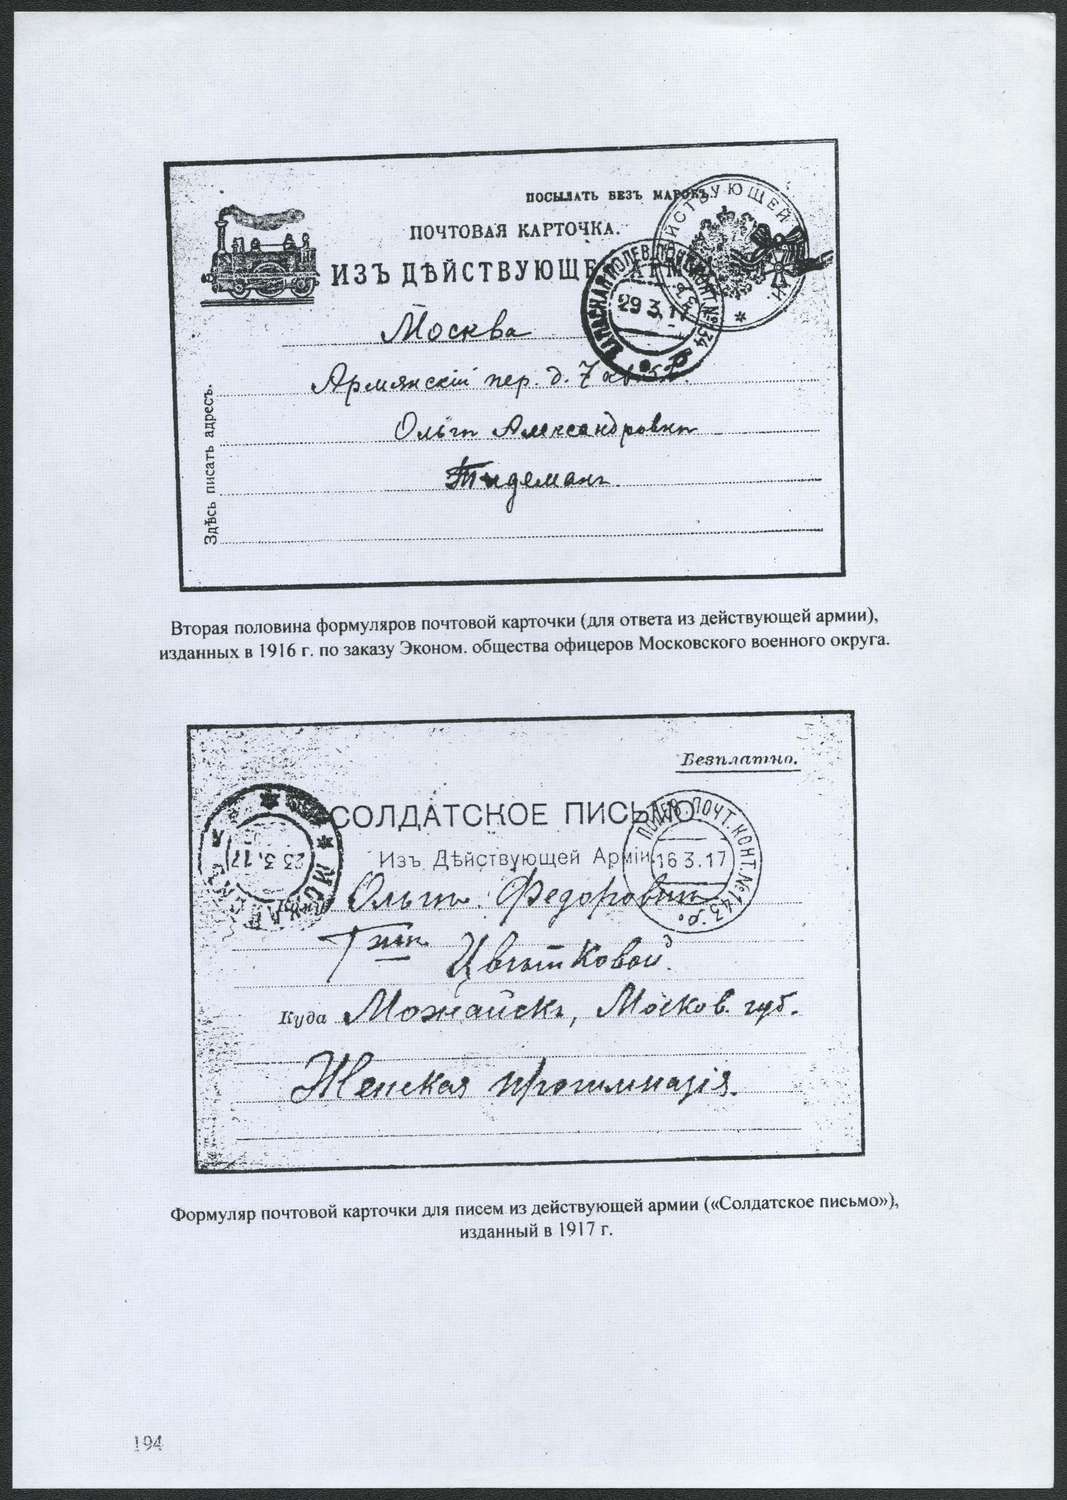 ПОСЫЛАТЬ БЕЗЪ МАРОКЪ.
ПОЧТОВАЯ КАРТОЧКА.
ИЗЪ ДѢЙСТВУЮЩЕЙ АРМ
ЙСТВУЮЩЕЙ
ПОЛЕВ. ПОЧТ. КОНТ. № 134
29 3. 17
Москва
Армянскій пер. д. 7
Ольгѣ Александровнѣ
Тидеманъ.
Здѣсь писать адресъ.
Вторая половина формуляров почтовой карточки (для ответа из действующей армии),
изданных в 1916 г. по заказу Эконом. общества офицеров Московского военного округа.
Безплатно.
СОЛДАТСКОЕ ПИСЬМО
Изъ Дѣйствующей Арміи.
ПОЛЕВ. ПОЧТ. КОНТ. № 143
16 3. 17
23 3. 17
Ольгѣ Федоровнѣ
Цвѣтковой.
Куда Можайскъ, Москов. губ.
Женская прогимназія.
Формуляр почтовой карточки для писем из действующей армии («Солдатское письмо»),
изданный в 1917 г.
194